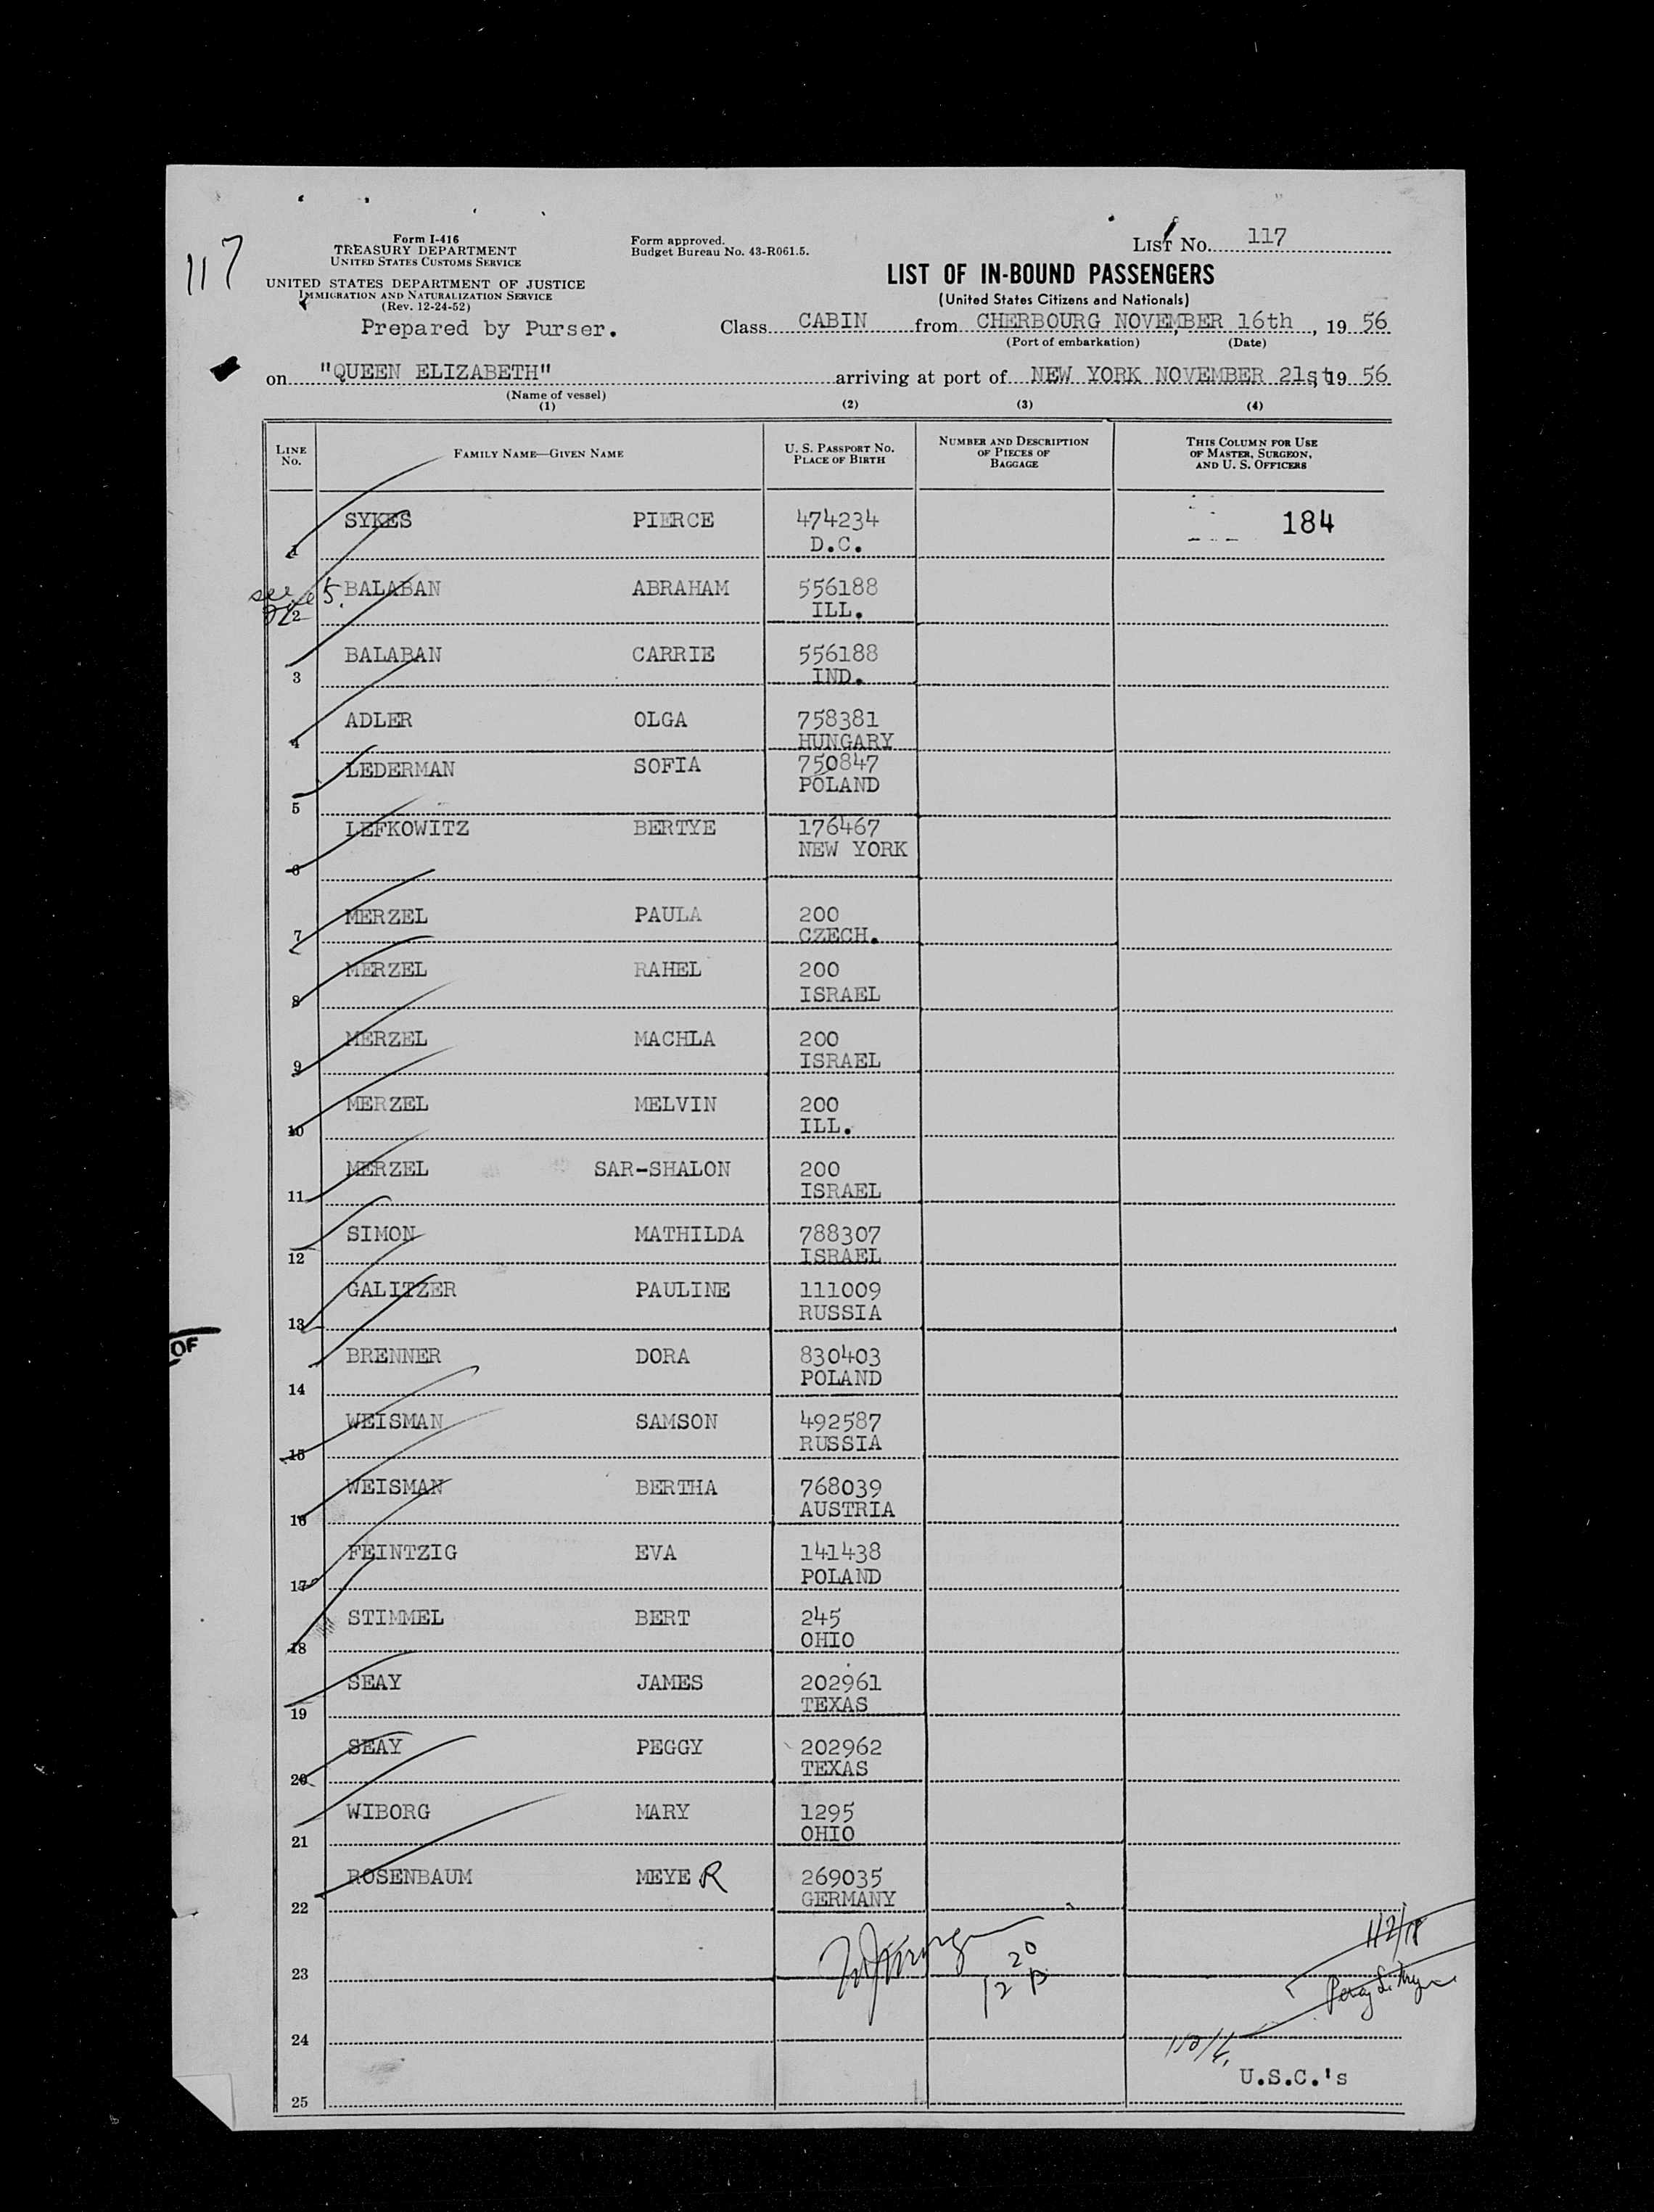 117
Form I-416
TREASURY DEPARTMENT
UNITED STATES CUSTOMS SERVICE
UNITED STATES DEPARTMENT OF JUSTICE
IMMIGRATION AND NATURALIZATION SERVICE
(Rev. 12-24-52)
Prepared by Purser.
Form approved.
Budget Bureau No. 43-R061.5.
LIST No. 117
LIST OF IN-BOUND PASSENGERS
(United States Citizens and Nationals)
Class CABIN from CHERBOURG NOVEMBER 16th, 19 56
(Port of embarkation) (Date)
on "QUEEN ELIZABETH" arriving at port of NEW YORK NOVEMBER 21st, 19 56
(Name of vessel)
(1) (2) (3) (4)
LINE No. FAMILY NAME—GIVEN NAME U. S. PASSPORT No. PLACE OF BIRTH NUMBER AND DESCRIPTION OF PIECES OF BAGGAGE THIS COLUMN FOR USE OF MASTER, SURGEON, AND U. S. OFFICERS
SYKES PIERCE 474234 184
1 D.C.
see 5. BALABAN ABRAHAM 556188
2 ILL.
BALABAN CARRIE 556188
3 IND.
ADLER OLGA 758381
4 HUNGARY
LEDERMAN SOFIA 750847
5 POLAND
LEFKOWITZ BERTYE 176467
6 NEW YORK
MERZEL PAULA 200
7 CZECH.
MERZEL RAHEL 200
8 ISRAEL
MERZEL MACHLA 200
9 ISRAEL
MERZEL MELVIN 200
10 ILL.
MERZEL SAR-SHALON 200
11 ISRAEL
SIMON MATHILDA 788307
12 ISRAEL
GALITZER PAULINE 111009
13 RUSSIA
OF
BRENNER DORA 830403
14 POLAND
WEISMAN SAMSON 492587
15 RUSSIA
WEISMAN BERTHA 768039
16 AUSTRIA
FEINTZIG EVA 141438
17 POLAND
STIMMEL BERT 245
18 OHIO
SEAY JAMES 202961
19 TEXAS
SEAY PEGGY 202962
20 TEXAS
WIBORG MARY 1295
21 OHIO
ROSENBAUM MEYER 269035
22 GERMANY
23
24
U.S.C.'s
25